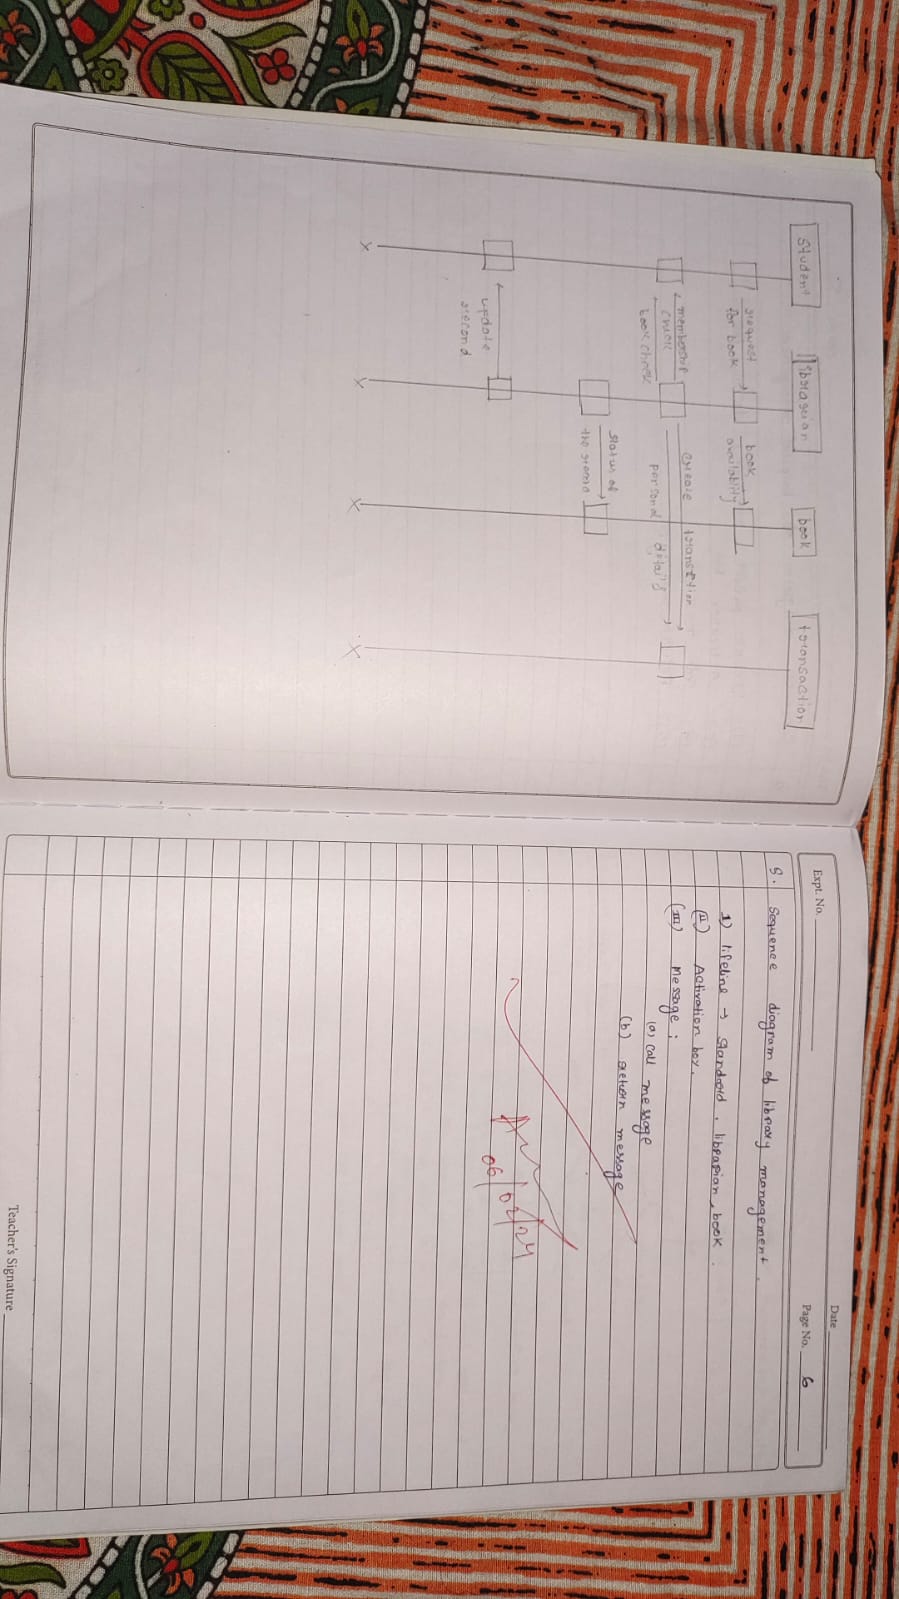 student
librarian
book
transaction
request
for book
book
availablity
membership
check
book check
create transition
personal details
status of
update
record
Expt. No.
Date
Page No. 6
8. Sequence diagram of library management.
1) lifeline → Standard, librarian, book.
(II) Activation box.
(III) Message:
(a) call message
(b) return message
06/02/24
Teacher's Signature